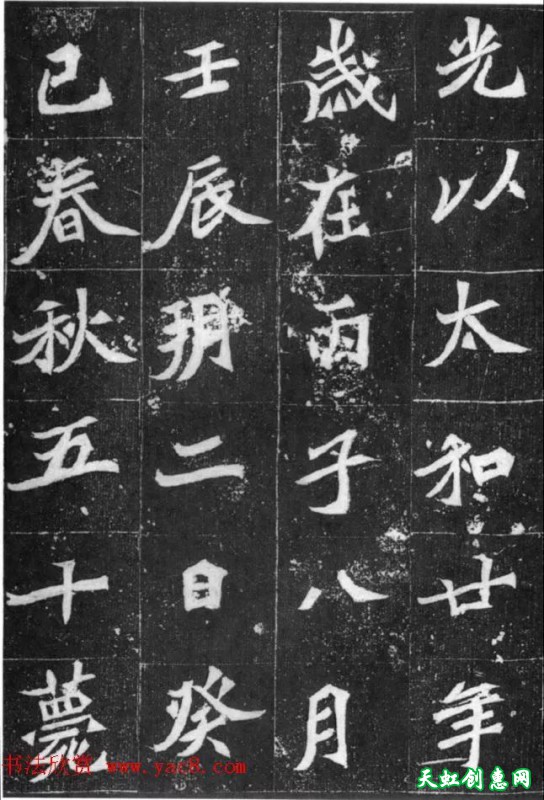 光以太和廿年
歲在丙子八月
壬辰朔二日癸
巳春秋五十薨
书法欣赏 www.yac8.com
天虹创意网